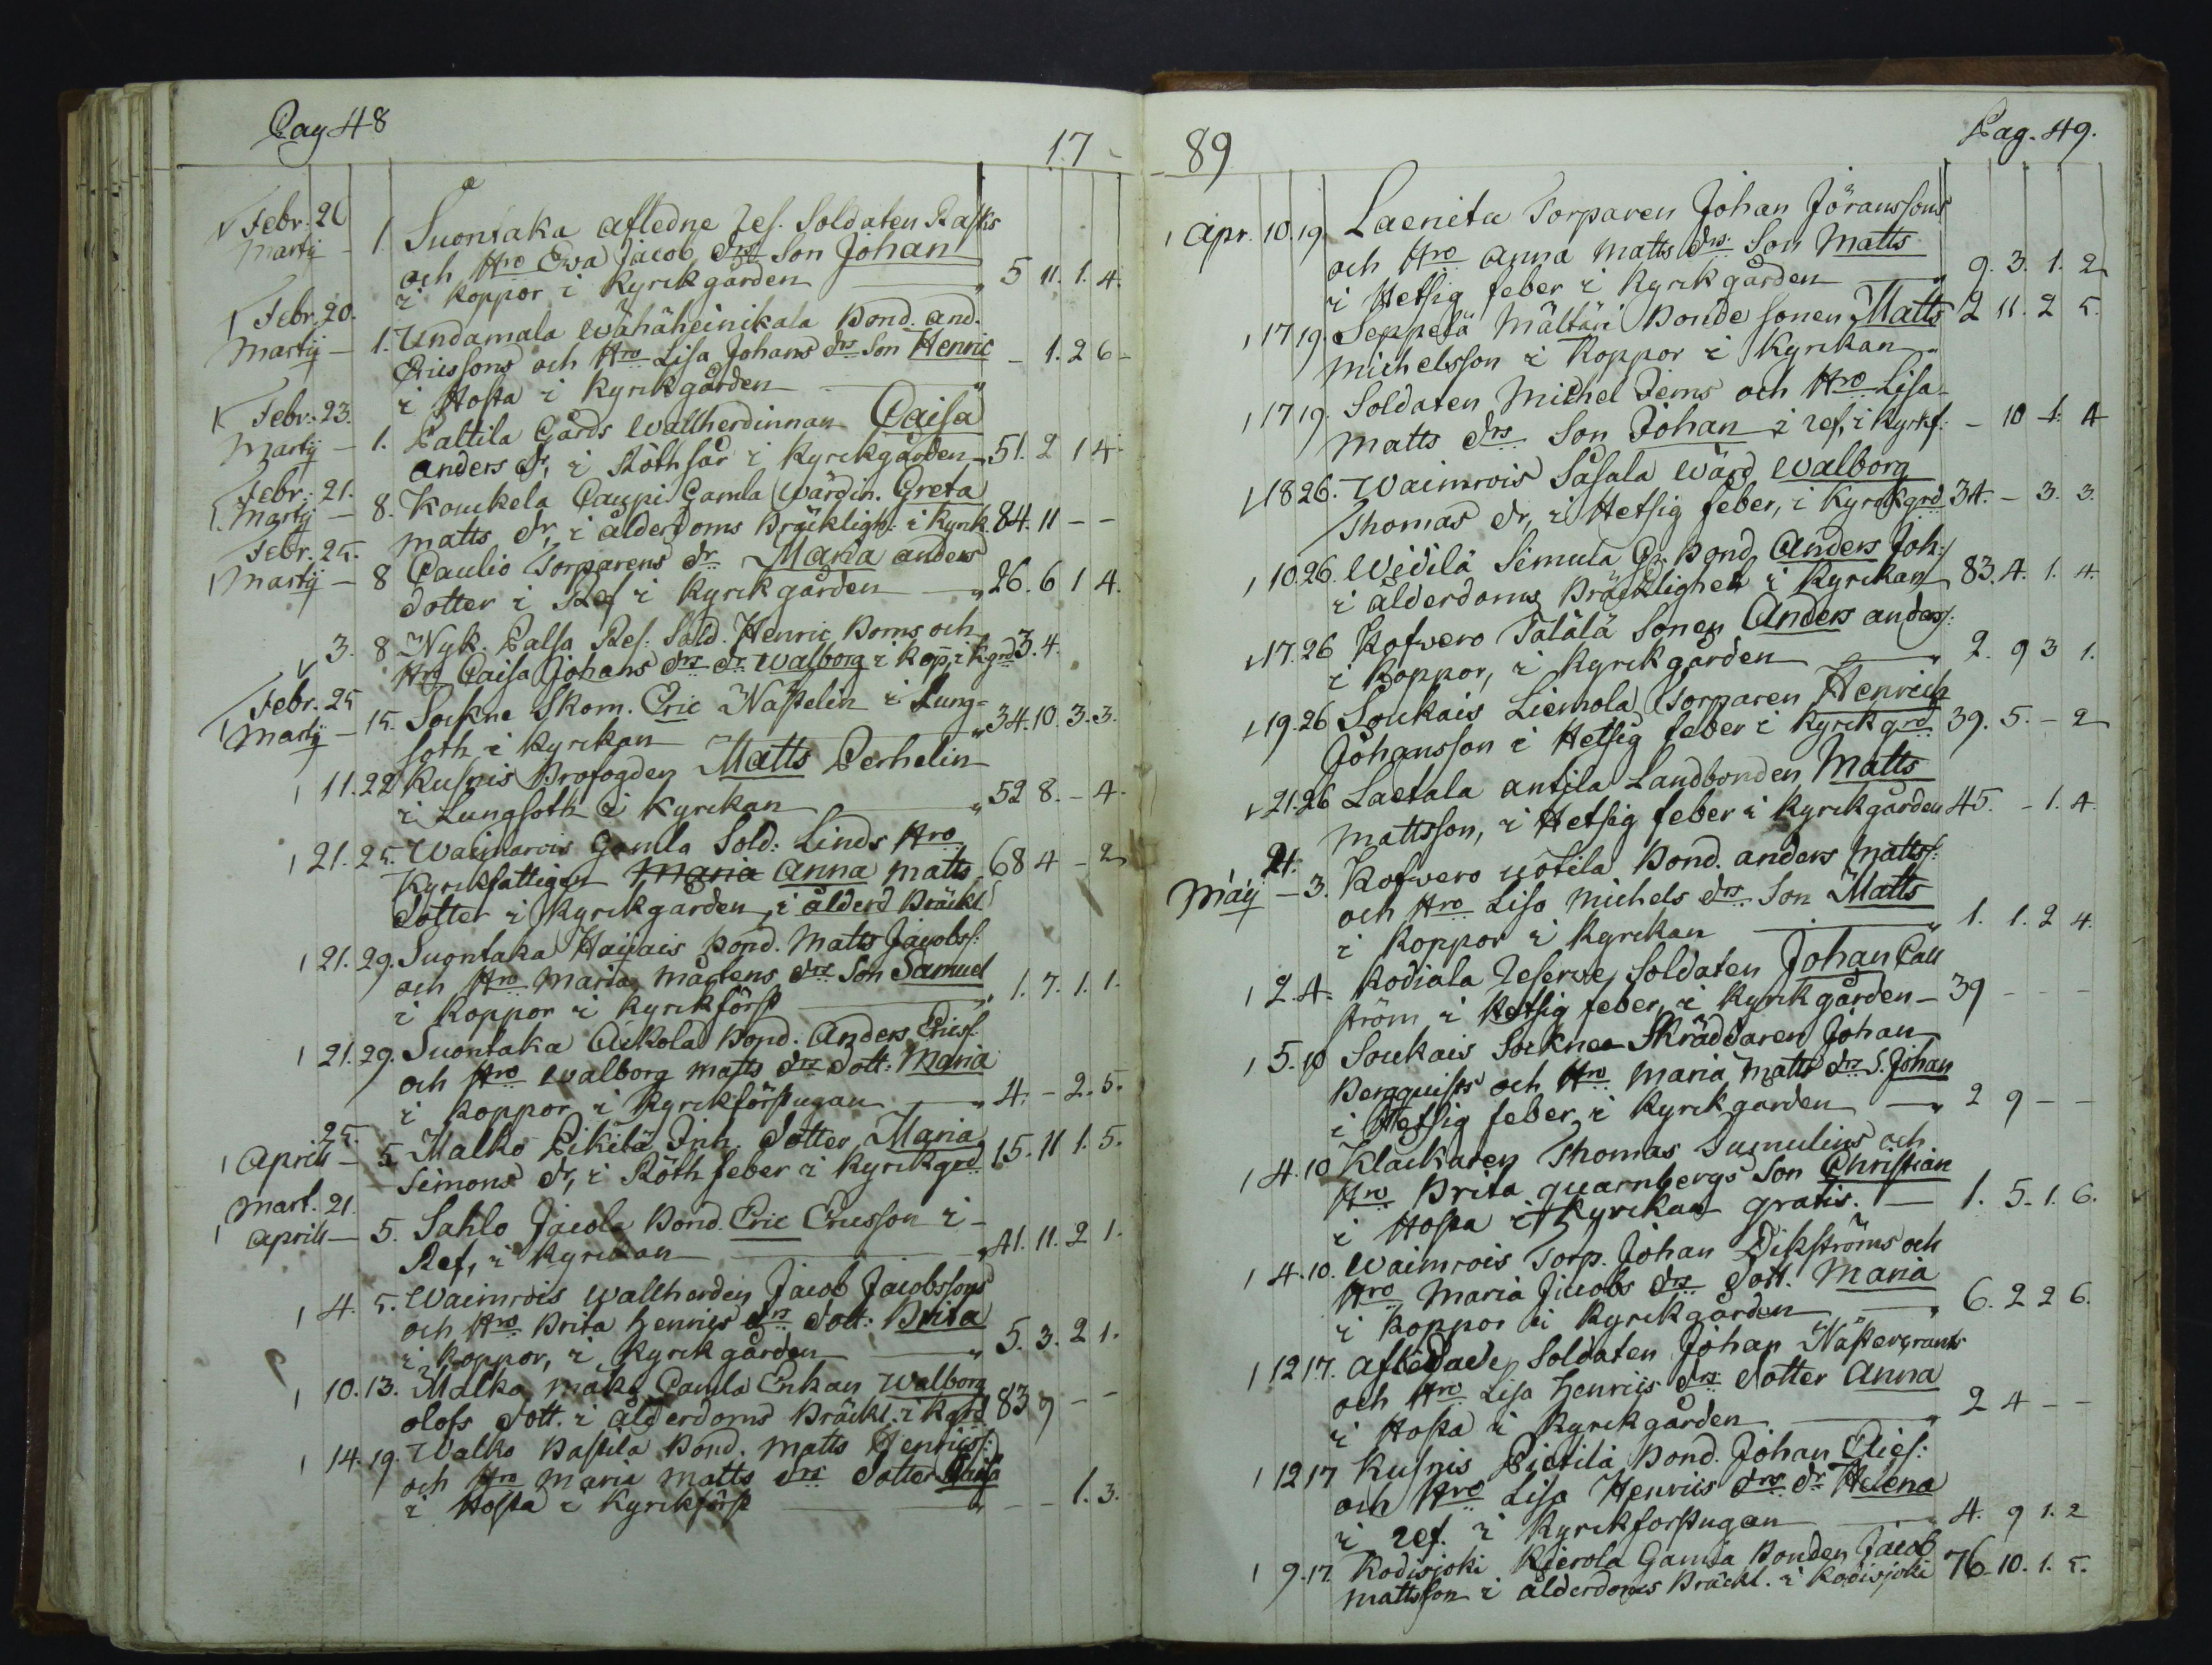 Pag 48
17
Febr. 26
Martij - 1. Suontaka afledne ref. Soldaten Rasks
och Hro Ewa Jacob drs Son Johan
i koppor i kyrkgården 5 11. 1. 4.
Febr. 20.
Martij - 1. Undamala Wähäheinikala Bond. And.
Ericssons och Hro Lisa Johans drs Son Henric - 1. 2 6
i Hosta i kyrkgården
Febr. 23.
Martij - 1. Laltila Gårds Wallherdinnan Caisa
Anders dr, i Röthsår i kyrckgården 51. 2 1 4
Febr. 21.
Martij - 8. Kouckela Caupi Gamla Wärdin. Greta
Matts dr, i ålderdoms Bräckligh. i kyrck 84. 11 - -
Febr. 25.
Martij - 8 Caulio Torparens dr Maria Anders
dotter i Ref i kyrckgården 26. 6 1 4.
3. 8 Nyk. Palsa Ref. Sold. Henric Boms och
Hro Caisa Johans drs dr Walborg i kop, i kgrd 3. 4.
Febr. 25
Martij - 15. Sockne Skom. Eric Waselin i Lung-
soth i kyrckan 34. 10. 3. 3.
11. 22 Kusnis Brofogden Matts Perhelin
i Lungsoth i kyrckan 52 8. - 4.
21. 25. Waimarois Gamla Sold: Linds Hro
Kyrckfattigen Maria Anna Matts 68 4 - 2
dotter i kyrckgården, i ålderd Bräckl
21. 29. Suontaka Haijais Bond. Matts Jacobss:
och Hro Maria Mårtens drs Son Samuel
i koppor i kyrckförst 1. 7. 1. 1.
21. 29. Suontaka Äckola Bond. Anders Ericss:
och Hro Walborg Matts drs dott: Maria
i koppor i kyrckförstugan 4. - 2. 5.
25.
Aprils - 5. Malko Pikilä Inh. dotter Maria
Simons dr, i Röth feber i kyrckgrd 15. 11 1. 5.
Mart. 21.
Aprils - 5. Sahlo Jacola Bond. Eric Ericsson i
Ref, i kyrckan 41. 11. 2 1.
4. 5. Waimrois Wallherden Jacob Jacobssons
och Hro Brita Henrics drs dott: Brita
i koppor, i kyrckgården 5. 3. 2 1.
10. 13. Malko Mako Gamla Enkan Walborg
Olofs dott. i ålderdoms Bräckl. i kgrd 83 9 - -
14. 19. Walko Pastila Bond. Matts Henricss:
och Hro Maria Matts drs dotter Caisa
i Hosta i kyrckförst - - 1. 3.
89
Pag. 49.
Apr. 10. 19. Laenita Torparen Johan Jöranssons
och Hro Anna Matts drs Son Matts
i Hetsig feber i kyrckgården 9. 3. 1. 2
17 19. Seppelä Mältäri Bonde sonen Matts 2 11. 2 5.
Michelsson i koppor i kyrckan
17 19. Soldaten Michel Fems och Hro Lisa
Matts drs Son Johan i ref, i kyrkf: - 10 1. 4
18 26. Waimrois Säsala Wärd Walborg
Thomas dr, i Hetsig feber, i kyrckgrd 34. - 3. 3.
10. 26. Widilä Simula G. Bond Anders Joh:
i ålderdoms Bräcklighet i kyrckan 83. 4. 1. 4.
17. 26 Kofwero Talälä Sonen Anders Anderss:
i koppor, i kyrckgården 2. 9 3 1.
19. 26 Soukais Liemola Torparen Henrich
Johansson i Hetsig feber i kyrckgrd 39. 5. - 2
21. 26 Laetala Antila Landbonden Matts
Mattsson, i Hetsig feber i kyrckgården 45. - 1. 4.
21.
Maij - 3. Kofwero Uotila Bond. Anders Mattss:
och Hro Lisa Michels drs Son Matts
i koppor i kyrckan 1. 1. 2 4.
2. 4. Kodiala Reserve Soldaten Johan Call
ström i Hetsig feber, i kyrckgården 39 - - -
5. 10 Soukais Sockne Skräddaren Johan
Bergquists och Hro Maria Matts drs S. Johan
i Hetsig feber i kyrckgården 2 9 - -
4. 10 Klackaren Thomas Sumulins och
Hro Brita Quarnbergs Son Christian
i Hosta i kyrckan gratis. 1. 5. 1. 6.
4. 10. Waimrois Torp. Johan Dikströms och
Hro Maria Jacobs drs dott. Maria
i koppor i kyrckgården 6. 2 2 6.
12 17. Afledade Soldaten Johan Wastergrans
och Hro Lisa Henrics drs dotter Anna
i Hosta i kyrckgården 2 4 - -
12 17 Kusnis Pietilä Bond. Johan Elies:
och Hro Lisa Henrics drs dr Helena
i ref. i kyrckforstugan 4. 9 1. 2
9. 17. Kodisjoki Kierola Gamla Bonden Jacob
Mattsson i ålderdoms Bräckl. i Kodisjoki 76. 10. 1. 5.